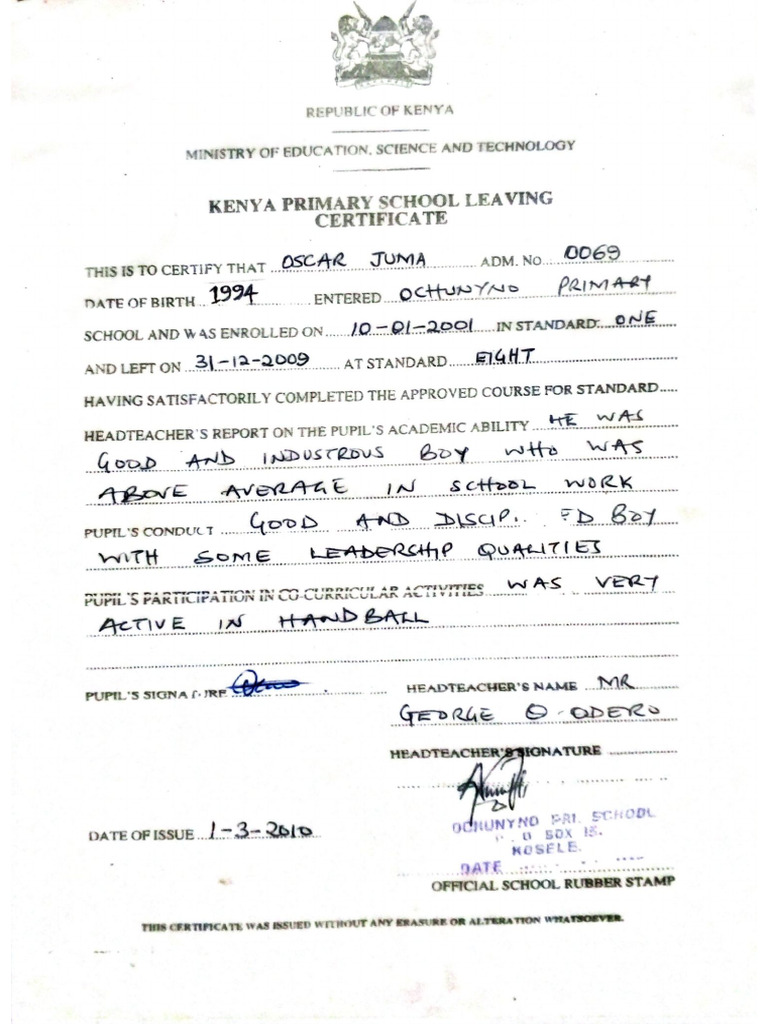 REPUBLIC OF KENYA
MINISTRY OF EDUCATION, SCIENCE AND TECHNOLOGY
KENYA PRIMARY SCHOOL LEAVING
CERTIFICATE
THIS IS TO CERTIFY THAT OSCAR JUMA ADM. NO. 0069
DATE OF BIRTH 1994 ENTERED OCHUNYNO PRIMARY
SCHOOL AND WAS ENROLLED ON 10-01-2001 IN STANDARD: ONE
AND LEFT ON 31-12-2009 AT STANDARD EIGHT
HAVING SATISFACTORILY COMPLETED THE APPROVED COURSE FOR STANDARD
HEADTEACHER'S REPORT ON THE PUPIL'S ACADEMIC ABILITY HE WAS
GOOD AND INDUSTROUS BOY WHO WAS
ABOVE AVERAGE IN SCHOOL WORK
PUPIL'S CONDUCT GOOD AND BOY
WITH SOME LEADERSHIP QUALITIES
PUPIL'S PARTICIPATION IN CO-CURRICULAR ACTIVITIES WAS VERY
ACTIVE IN HANDBALL
PUPIL'S SIGNATURE
HEADTEACHER'S NAME MR
GEORGE O. ODERO
HEADTEACHER'S SIGNATURE
OCHUNYNO PRI. SCHOOL
P. O BOX 15.
KOSELE.
DATE
DATE OF ISSUE 1-3-2010
OFFICIAL SCHOOL RUBBER STAMP
THIS CERTIFICATE WAS ISSUED WITHOUT ANY ERASURE OR ALTERATION WHATSOEVER.